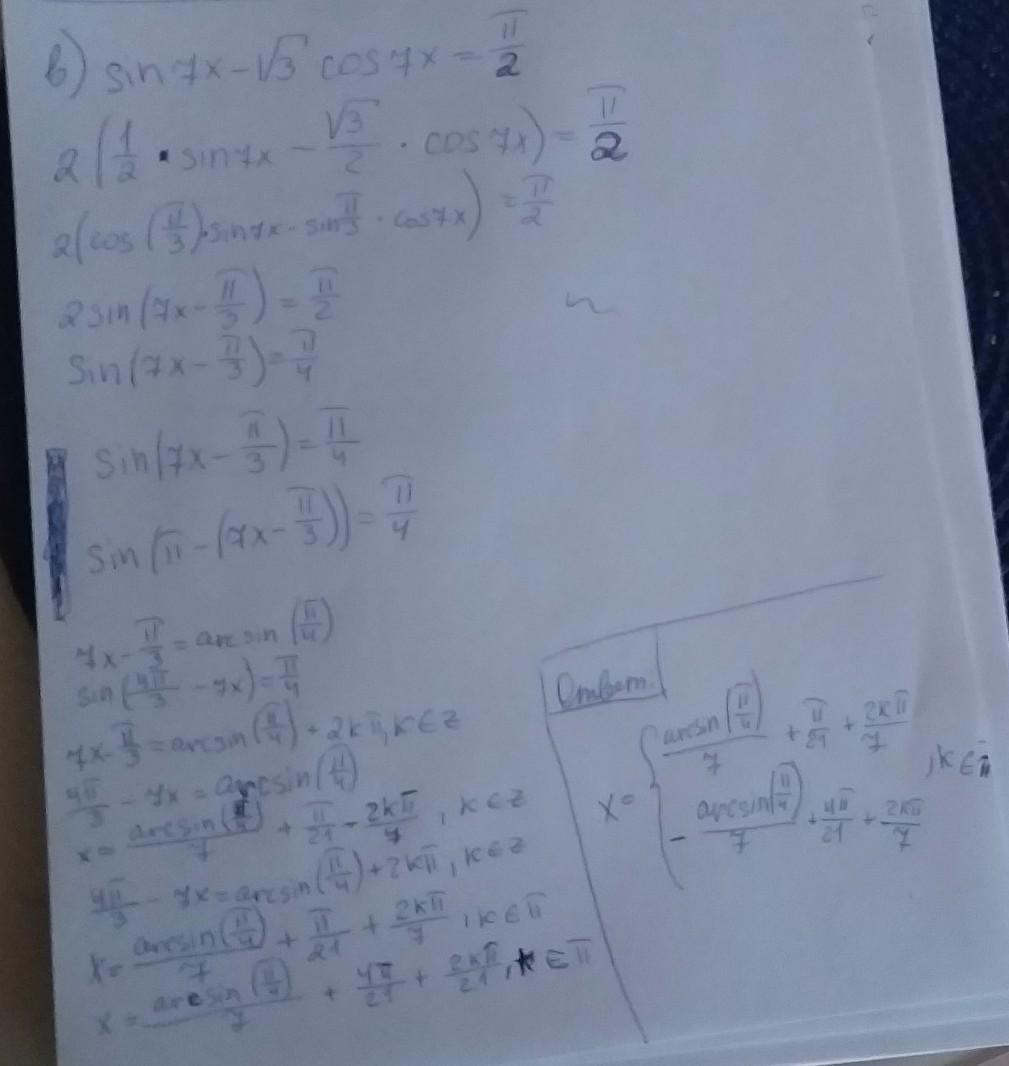 в) sin7x - √3 cos7x = π/2
2(1/2 · sin7x - √3/2 · cos7x) = π/2
2(cos(π/3)·sin7x - sin π/3 · cos7x) = π/2
2sin(7x - π/3) = π/2
sin(7x - π/3) = π/4
sin(7x - π/3) = π/4
sin(π - (7x - π/3)) = π/4
7x - π/3 = arcsin(π/4)
sin(4π/3 - 7x) = π/4
7x - π/3 = arcsin(π/4) + 2kπ, k ∈ z
4π/3 - 7x = arcsin(π/4)
x = arcsin(π/4)/7 + π/21 - 2kπ/7, k ∈ z
4π/3 - 7x = arcsin(π/4) + 2kπ, k ∈ z
x = arcsin(π/4)/7 + π/21 + 2kπ/7, k ∈ π
x = arcsin(π/4)/7 + 4π/21 + 2kπ/21, k ∈ π
Ответ:
x = { arcsin(π/4)/7 + π/21 + 2kπ/7
- arcsin(π/4)/7 + 4π/21 + 2kπ/7
, k ∈ π